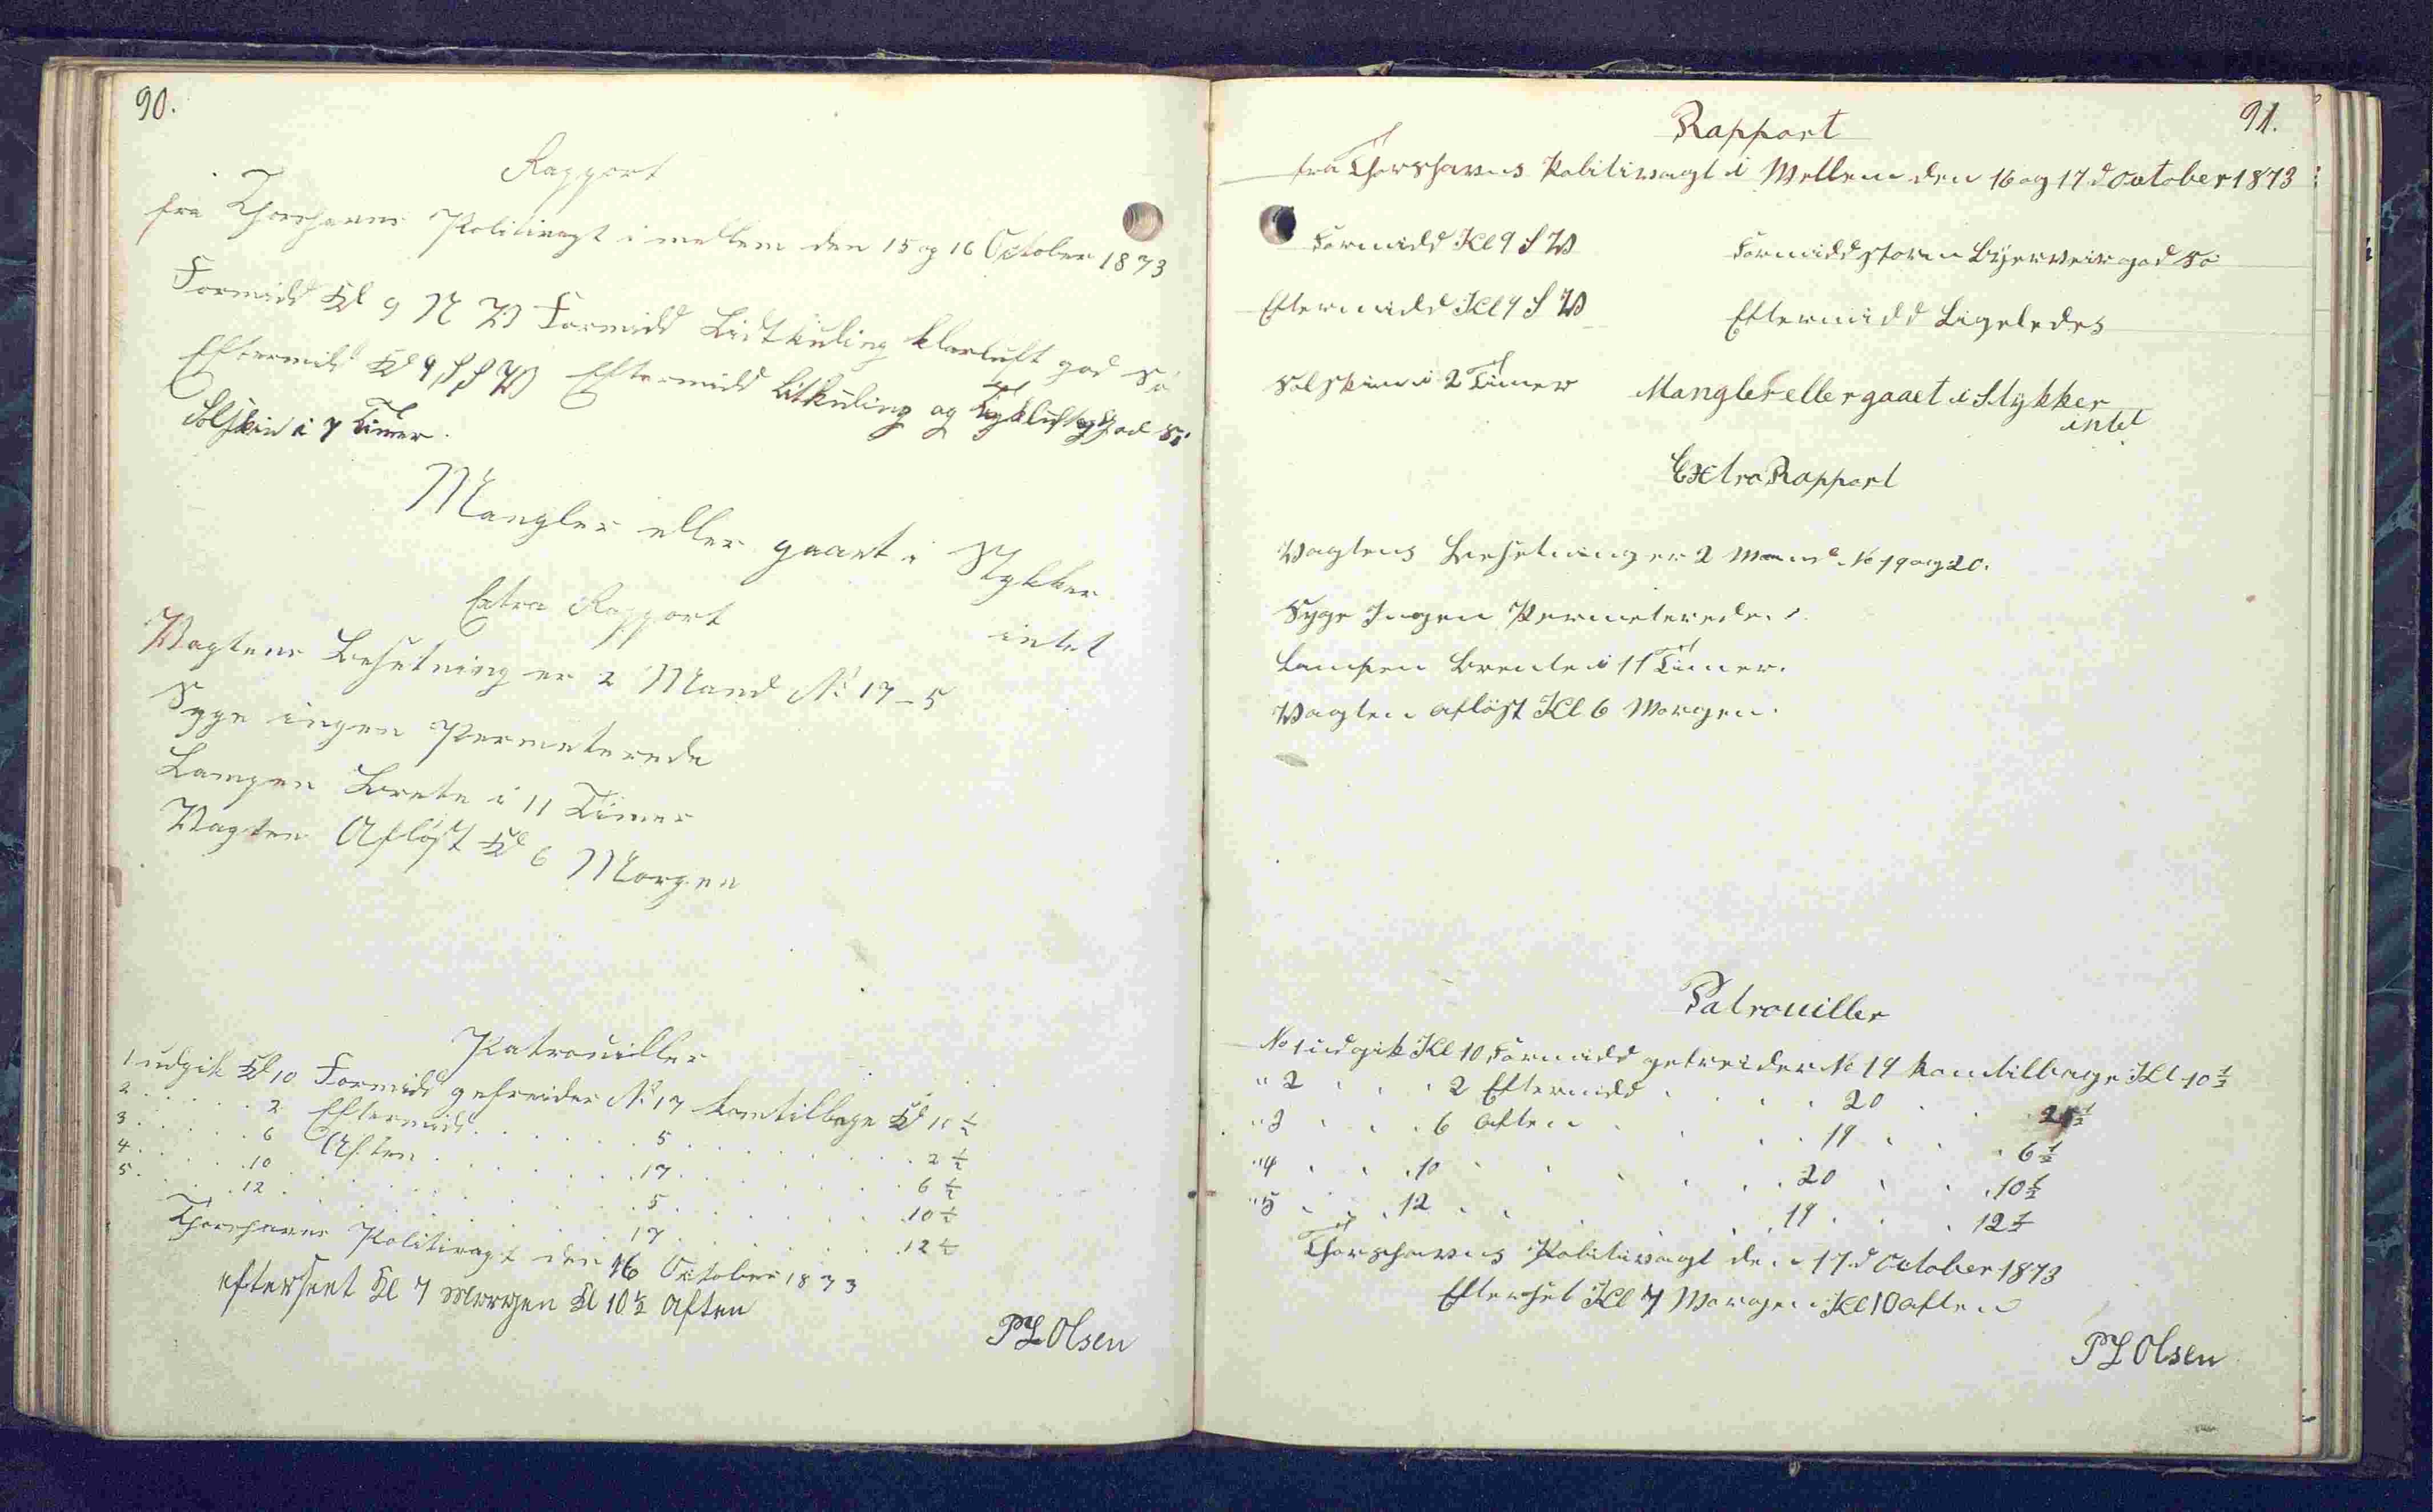 90.
Rapport
fra Thorshavns Politivagt i mellem den 15 og 16 October 1873
Formidd Kl 9 N W Formidd Lidt kuling klarluft god Sö
Eftermidd Kl 4 S S W Eftermidd Litkuling og Tykluft og god Sö
Solskin i 7 Timer.
Mangler eller gaaet i Stykker
intet
Extra Rapport
Vagtens Besetning er 2 Mand No 17 - 5
Syge ingen Permeterede
Lampen Brente i 11 Timer
Vagten Aflöst Kl 6 Morgen
Patrouiller
1 udgik Kl 10 Formidd gefreider No 17 kom tilbage Kl 10 ½
2 . . . . . 2 Eftermidd . . . . . . 5 . . . . . . . . 2 ½
3 . . . . . 6 Aften . . . . . . 17 . . . . . . . 6 ½
4 . . . . . 10 . . . . . . . . 5 . . . . . . . 10 ½
5 . . . . 12 . . . . . . . . 17 . . . . . . . 12 ½
Thorshavns Politivagt den 16 October 1873
efterseet Kl 7 Morgen Kl 10 ½ Aften
P L Olsen
91.
Rapport
fra Thorshavns Politivagt i Mellem den 16 og 17 d October 1873
Formidd Kl 9 S W Formidd storm Byerveir god Sö
Eftermidd Kl 4 S W Eftermidd Ligeledes
Solskin i 2 Timer Mangler eller gaaet i Stykker
intet
Extra Rapport
Vagtens Besetning er 2 Mand No 19 og 20.
Syge Ingen Permeterede.
Lampen Brente i 11 Timer.
Vagten aflöst Kl 6 Morgen.
Patrouiller
No 1 udgik Kl 10 Formidd gefreider No 19 kom tilbage Kl 10 ½
" 2 . . . 2 Eftermidd . . . . 20 . . . 2 ½
" 3 . . . 6 Aften . . . . 19 . . . 6 ½
" 4 . . . 10 . . . . . . 20 . . . 10 ½
" 5 . . . 12 . . . . . . 19 . . . 12 ½
Thorshavns Politivagt den 17 d October 1873
Efterset Kl 7 Morgen Kl 10 aften
P L Olsen